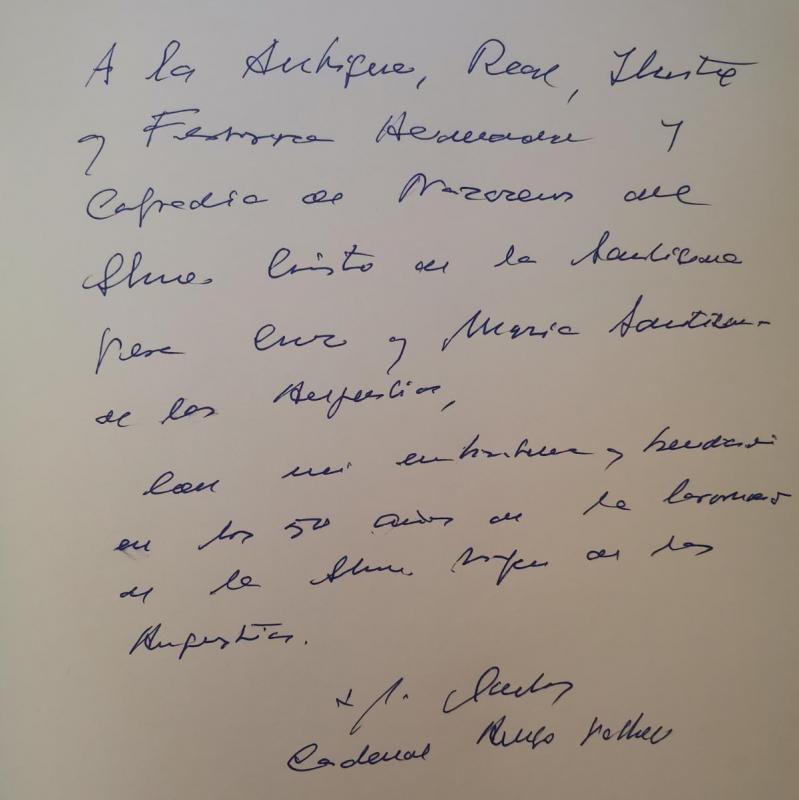 A la Antigua, Real, Ilustre
y Fervorosa Hermandad y
Cofradía de Nazarenos del
Stmo. Cristo de la Santísima
Vera Cruz y María Santísima
de las Angustias,
Con mi enhorabuena y bendición
en los 50 años de la Coronación
de la Stma. Virgen de las
Angustias.
+ J. Carlos
Cardenal Amigo Vallejo